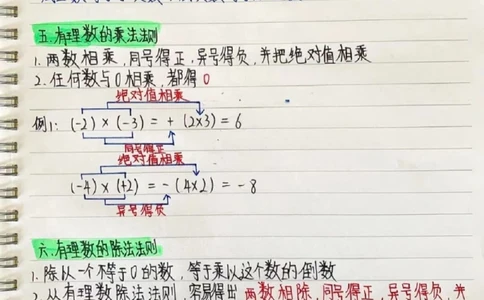 五.有理数的乘法法则
1.两数相乘,同号得正,异号得负,并把绝对值相乘
2.任何数与0相乘,都得0
绝对值相乘
例1: (-2)×(-3)=+(2×3)=6
同号得正
绝对值相乘
(-4)×(+2)=-(4×2)=-8
异号得负
六.有理数的除法法则
1.除以一个不等于0的数,等于乘以这个数的倒数
2.从有理数除法法则,容易得出 两数相除,同号得正,异号得负,并